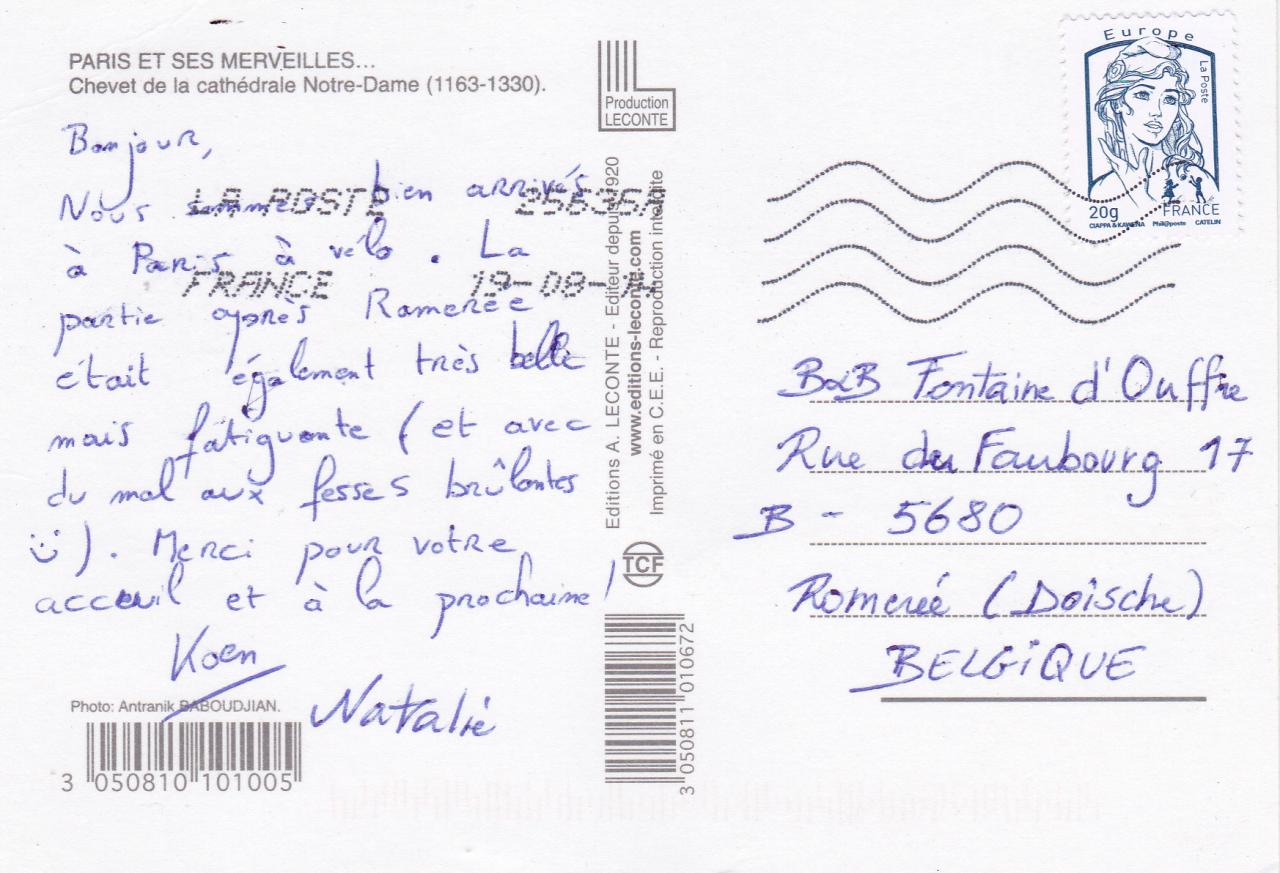 PARIS ET SES MERVEILLES...
Chevet de la cathédrale Notre-Dame (1163-1330).
Bonjour,
Nous sommes bien arrivés
à Paris à vélo. La
partie après Romerée
était également très belle
mais fatiguante (et avec
du mal aux fesses brûlantes
:-) ). Merci pour votre
acceuil et à la prochaine!
Koen
Natalie
Photo: Antranik BABOUDJIAN.
3 050810 101005
LA POSTE
FRANCE 19-08-
Production
LECONTE
Editions A. LECONTE - Editeur depuis 1920
www.editions-leconte.com
Imprimé en C.E.E. - Reproduction interdite
TCF
3 050811 010672
Europe
La Poste
20g FRANCE
CIAPPA & KAWENA Phil@poste CATELIN
B&B Fontaine d'Ouffre
Rue du Faubourg 17
B - 5680
Romerée (Doische)
BELGIQUE